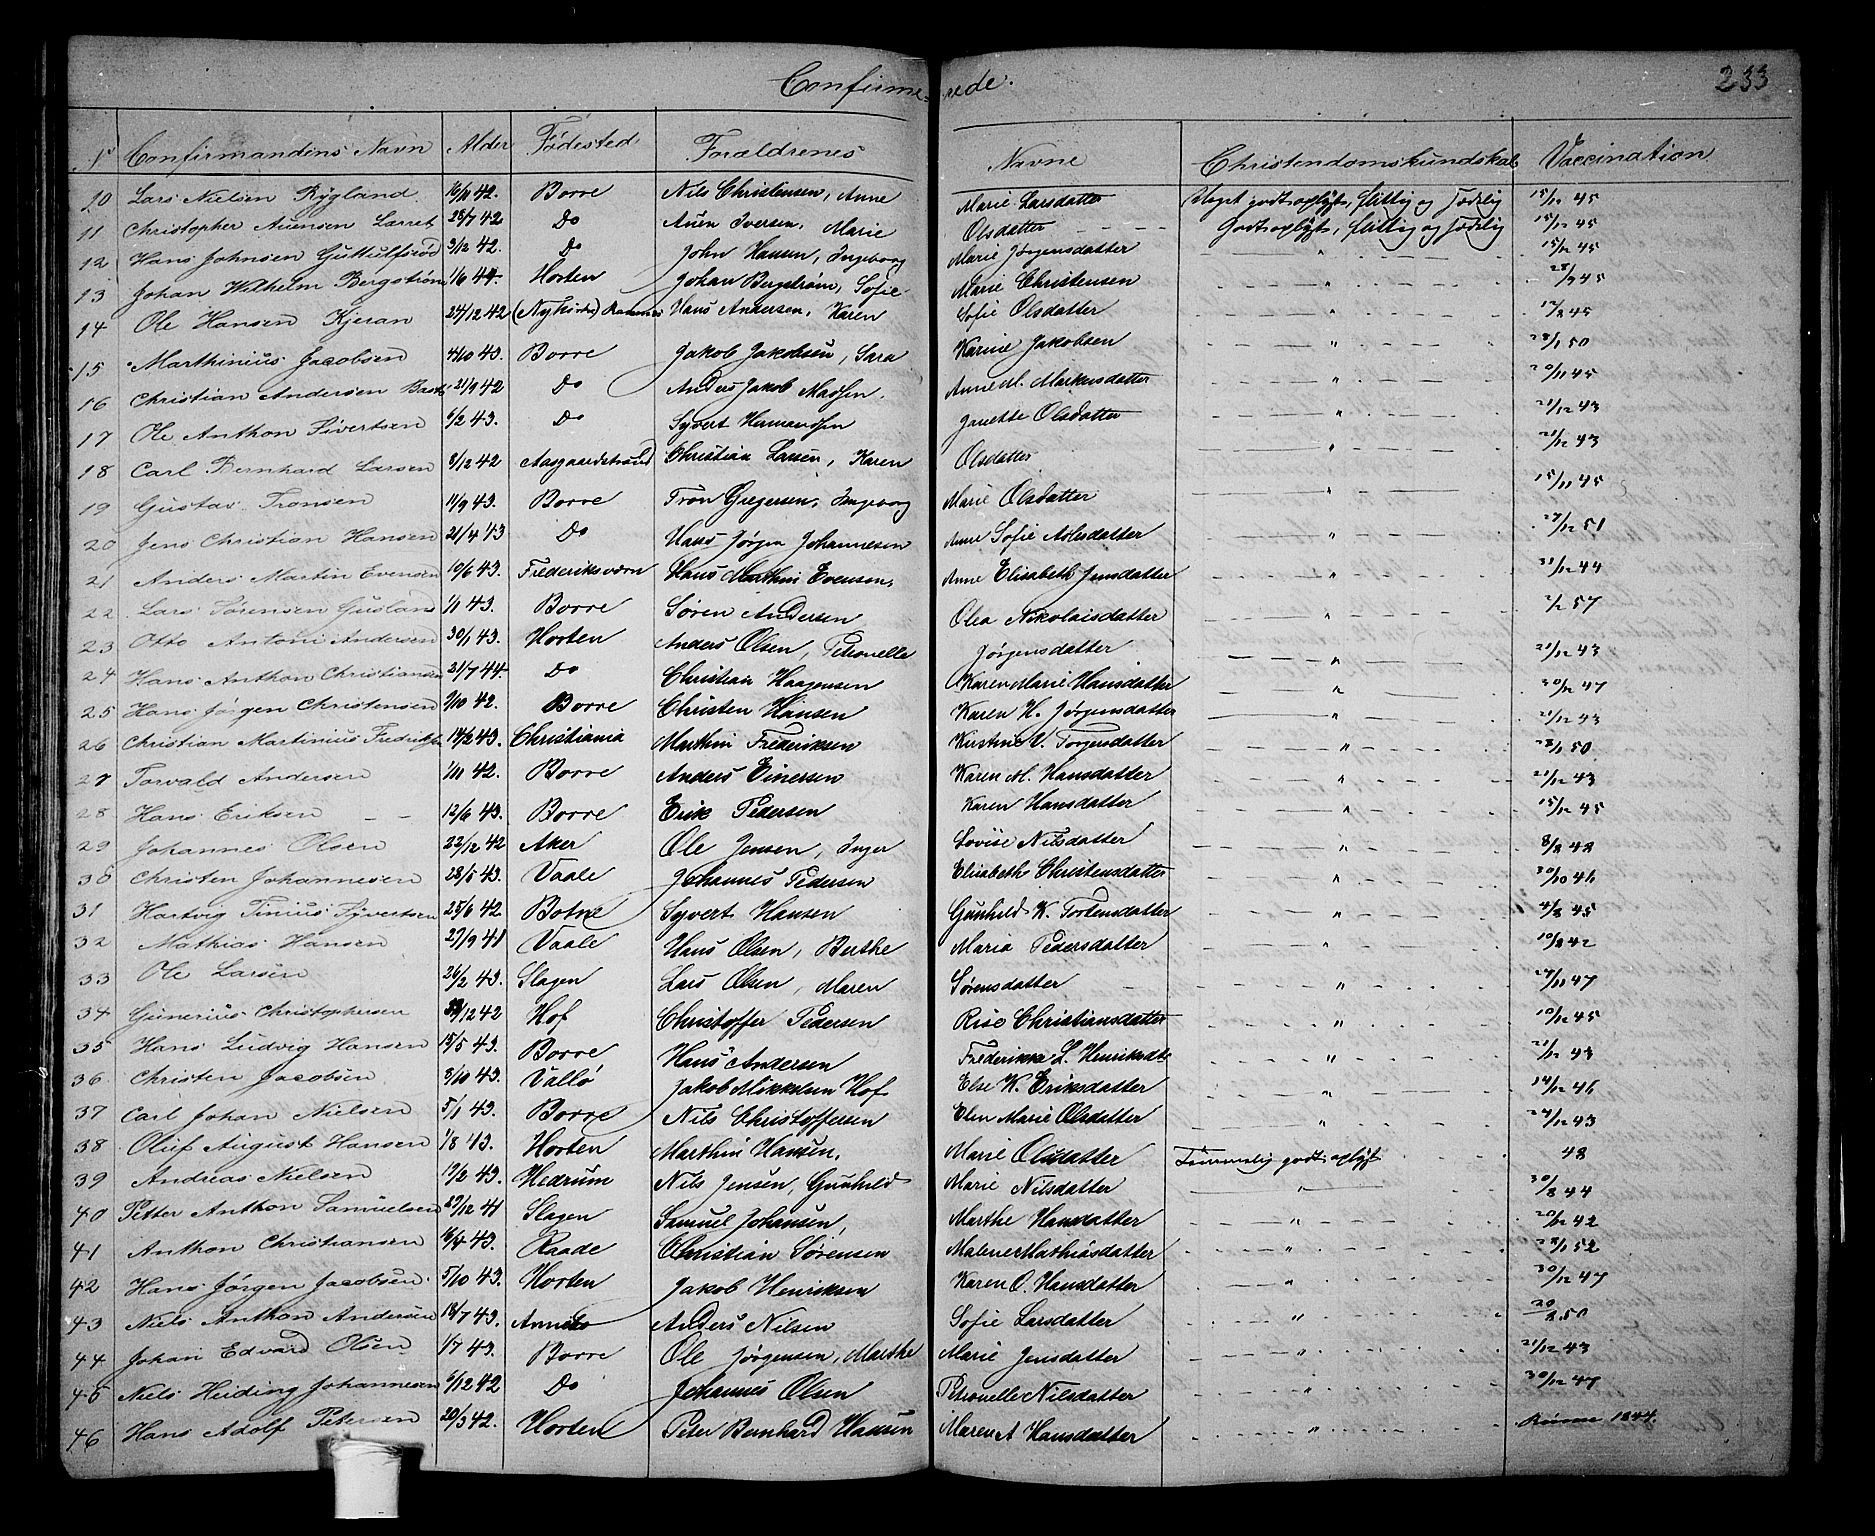 Confirmerede. 233
№ Confirmandens Navn Alder Fødested Forældrenes Navne Christendomskundskab Vaccination
10 Lars Nielsen Rygland 42. Borre Nils Christensen, Anne Marie Larsdatter Meget godt oplyst, flittig og sædelig 15/12 45
11 Christopher Auensen 28/7 42 Do Auen Iversen, Marie Olsdatter Godt oplyst, flittig og sædelig 15/12 45
12 Hans Johnsen 3/12 42. Do John Hansen, Ingeborg Marie Jørgensdatter " 15/12 45
13 Johan Wilhelm Bergstrøm 1/6 44. Horten Johan Bergstrøm, Sofie Marie Christensen " 45
14 Ole Hansen Kjeran 24/12 42 (Nykirke) Ramnes Hans Andersen, Karen Sofie Olsdatter " 45
15 Marthinius Jacobsen 4/10 43. Borre Jakob Jakobsen, Sara Karine Jakobsen " 28/1 50
16 Christian Andersen 21/9 42 Do Anders Jakob Madsen. Anne M. Markusdatter " 20/11 45
17 Ole Anthon Sivertsen 6/2 43. Do Syvert Hansen Janette Olsdatter " 21/12 43
18 Carl Bernhard Larsen 8/12 42 Aasgaardstrand Christian Larsen, Karen Olsdatter " 21/12 43
19 Gustav Tronsen 11/9 43. Borre Tron Gregersen, Ingeborg Marie Olsdatter " 15/11 45
20 Jens Christian Hansen 21/4 43 Do Hans Jørgen Johannesen Anne Sofie Aslesdatter " 27/12 51
21 Anders Martin Evensen 10/6 43. Frederiksværn Hans Mathis Evensen, Anne Elisabeth Jensdatter " 31/12 44
22 Lars Sørensen 1/1 43. Borre Søren Andersen Olea Nikolaisdatter " 57
23 Otto Antoni Andersen 30/1 43. Horten Anders Olsen, Petronelle Jørgensdatter 21/12 43
24 Hans Anthon Christiansen 21/7 44. Do Christian Haagensen Karen Marie Hansdatter " 30/12 47
25 Hans Jørgen Christensen 2/10 42. Borre Christen Hansen Karen H. Jørgensdatter " 21/12 43
26 Christian Martinius Fredriksen 14/2 43. Christiania Marthin Frederiksen Kirstine V. Torgersdatter " 28/1 50
27 Torvald Andersen 1/11 42. Borre Anders Einersen Karen M. Hansdatter " 21/12 43
28 Hans Eriksen 12/6 43. Borre Erik Pedersen Karen Hansdatter " 15/12 45
29 Johannes Olsen 22/12 42 Aker Ole Jensen, Inger Lovise Nilsdatter " 8/2 42
30 Christen Johannesen 28/5 43. Vaale Johannes Pedersen Elisabeth Christensdatter " 30/10 46
31 Hartvig Tinius Syvertsen 25/6 42 Botne Syvert Hansen Gunhild K. Torstensdatter " 4/8 45
32 Mathias Hansen 27/9 41 Vaale Hans Olsen, Berthe Maria Pedersdatter " 10/2 42
33 Ole Larsen 26/2 43. Slagen Lars Olsen, Maren Sørensdatter " 27/11 47
34 Gunerius Christophersen 42 Hof Christoffer Pedersen Rise Christiansdatter " 10/12 45
35 Hans Ludvig Hansen 15/5 43. Borre Hans Andersen Frederikka L. Henriksdt " 21/12 43
36 Christen Jacobsen 3/10 43. Vallø Jakob Mikkelsen Hof Else K. Eriksdatter " 14/12 46
37 Carl Johan Nielsen 5/1 43. Borre Nils Christoffersen Elen Marie Olsdatter " 24/12 43
38 Oluf August Hansen 1/8 43. Horten Marthin Hansen, Marie Olsdatter Temmelig godt oplyst 48
39 Andreas Nielsen 17/2 43. Hedrum Nils Jensen, Gunhild Marie Nilsdatter " 30/8 44
40 Petter Anthon Samuelsen 29/12 41 Slagen Samuel Johansen, Marthe Hansdatter " 20/12 42
41 Anthon Christiansen 6/4 43. Raade Christian Sørensen Malene Mathiasdatter " 28/1 52
42 Hans Jørgen Jacobsen 5/10 43. Horten Jakob Henriksen Karen O. Hansdatter " 30/12 47
43 Niels Anthon Andersen 18/7 43. Anders Nilsen Sofie Larsdatter " 50
44 Johan Edvard Olsen 1/7 43. Borre Ole Jørgensen, Marthe Marie Jensdatter " 21/12 43
45 Niels Heiding Johannesen 6/12 42 Do Johannes Olsen Petronelle Nilsdatter " 30/12 47
46 Hans Adolf Petersen 20/3 42. Horten Peter Bernhard Hansen Maren A Hansdatter " 1844.